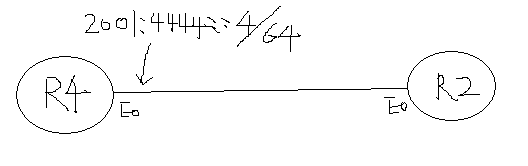 2001:4444::4/64
R4
E0
E0
R2